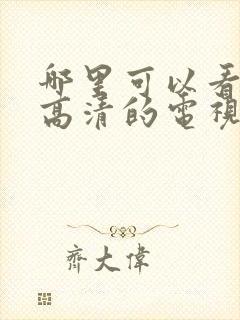 哪里可以看
高清的電視
齊大偉